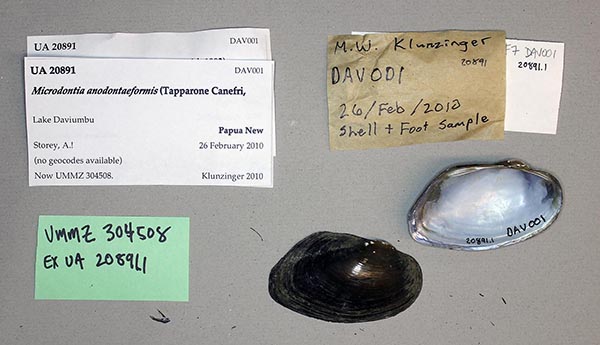 UA 20891 DAV001
UA 20891 DAV001
Microdontia anodontaeformis (Tapparone Canefri,
Lake Daviumbu
Papua New
Storey, A.! 26 February 2010
(no geocodes available)
Now UMMZ 304508. Klunzinger 2010
M.W. Klunzinger
20891
DAV001
26/Feb/2010
Shell + Foot Sample
F7 DAV001
20891.1
UMMZ 304508
EX UA 20891.1
DAV001
20891.1